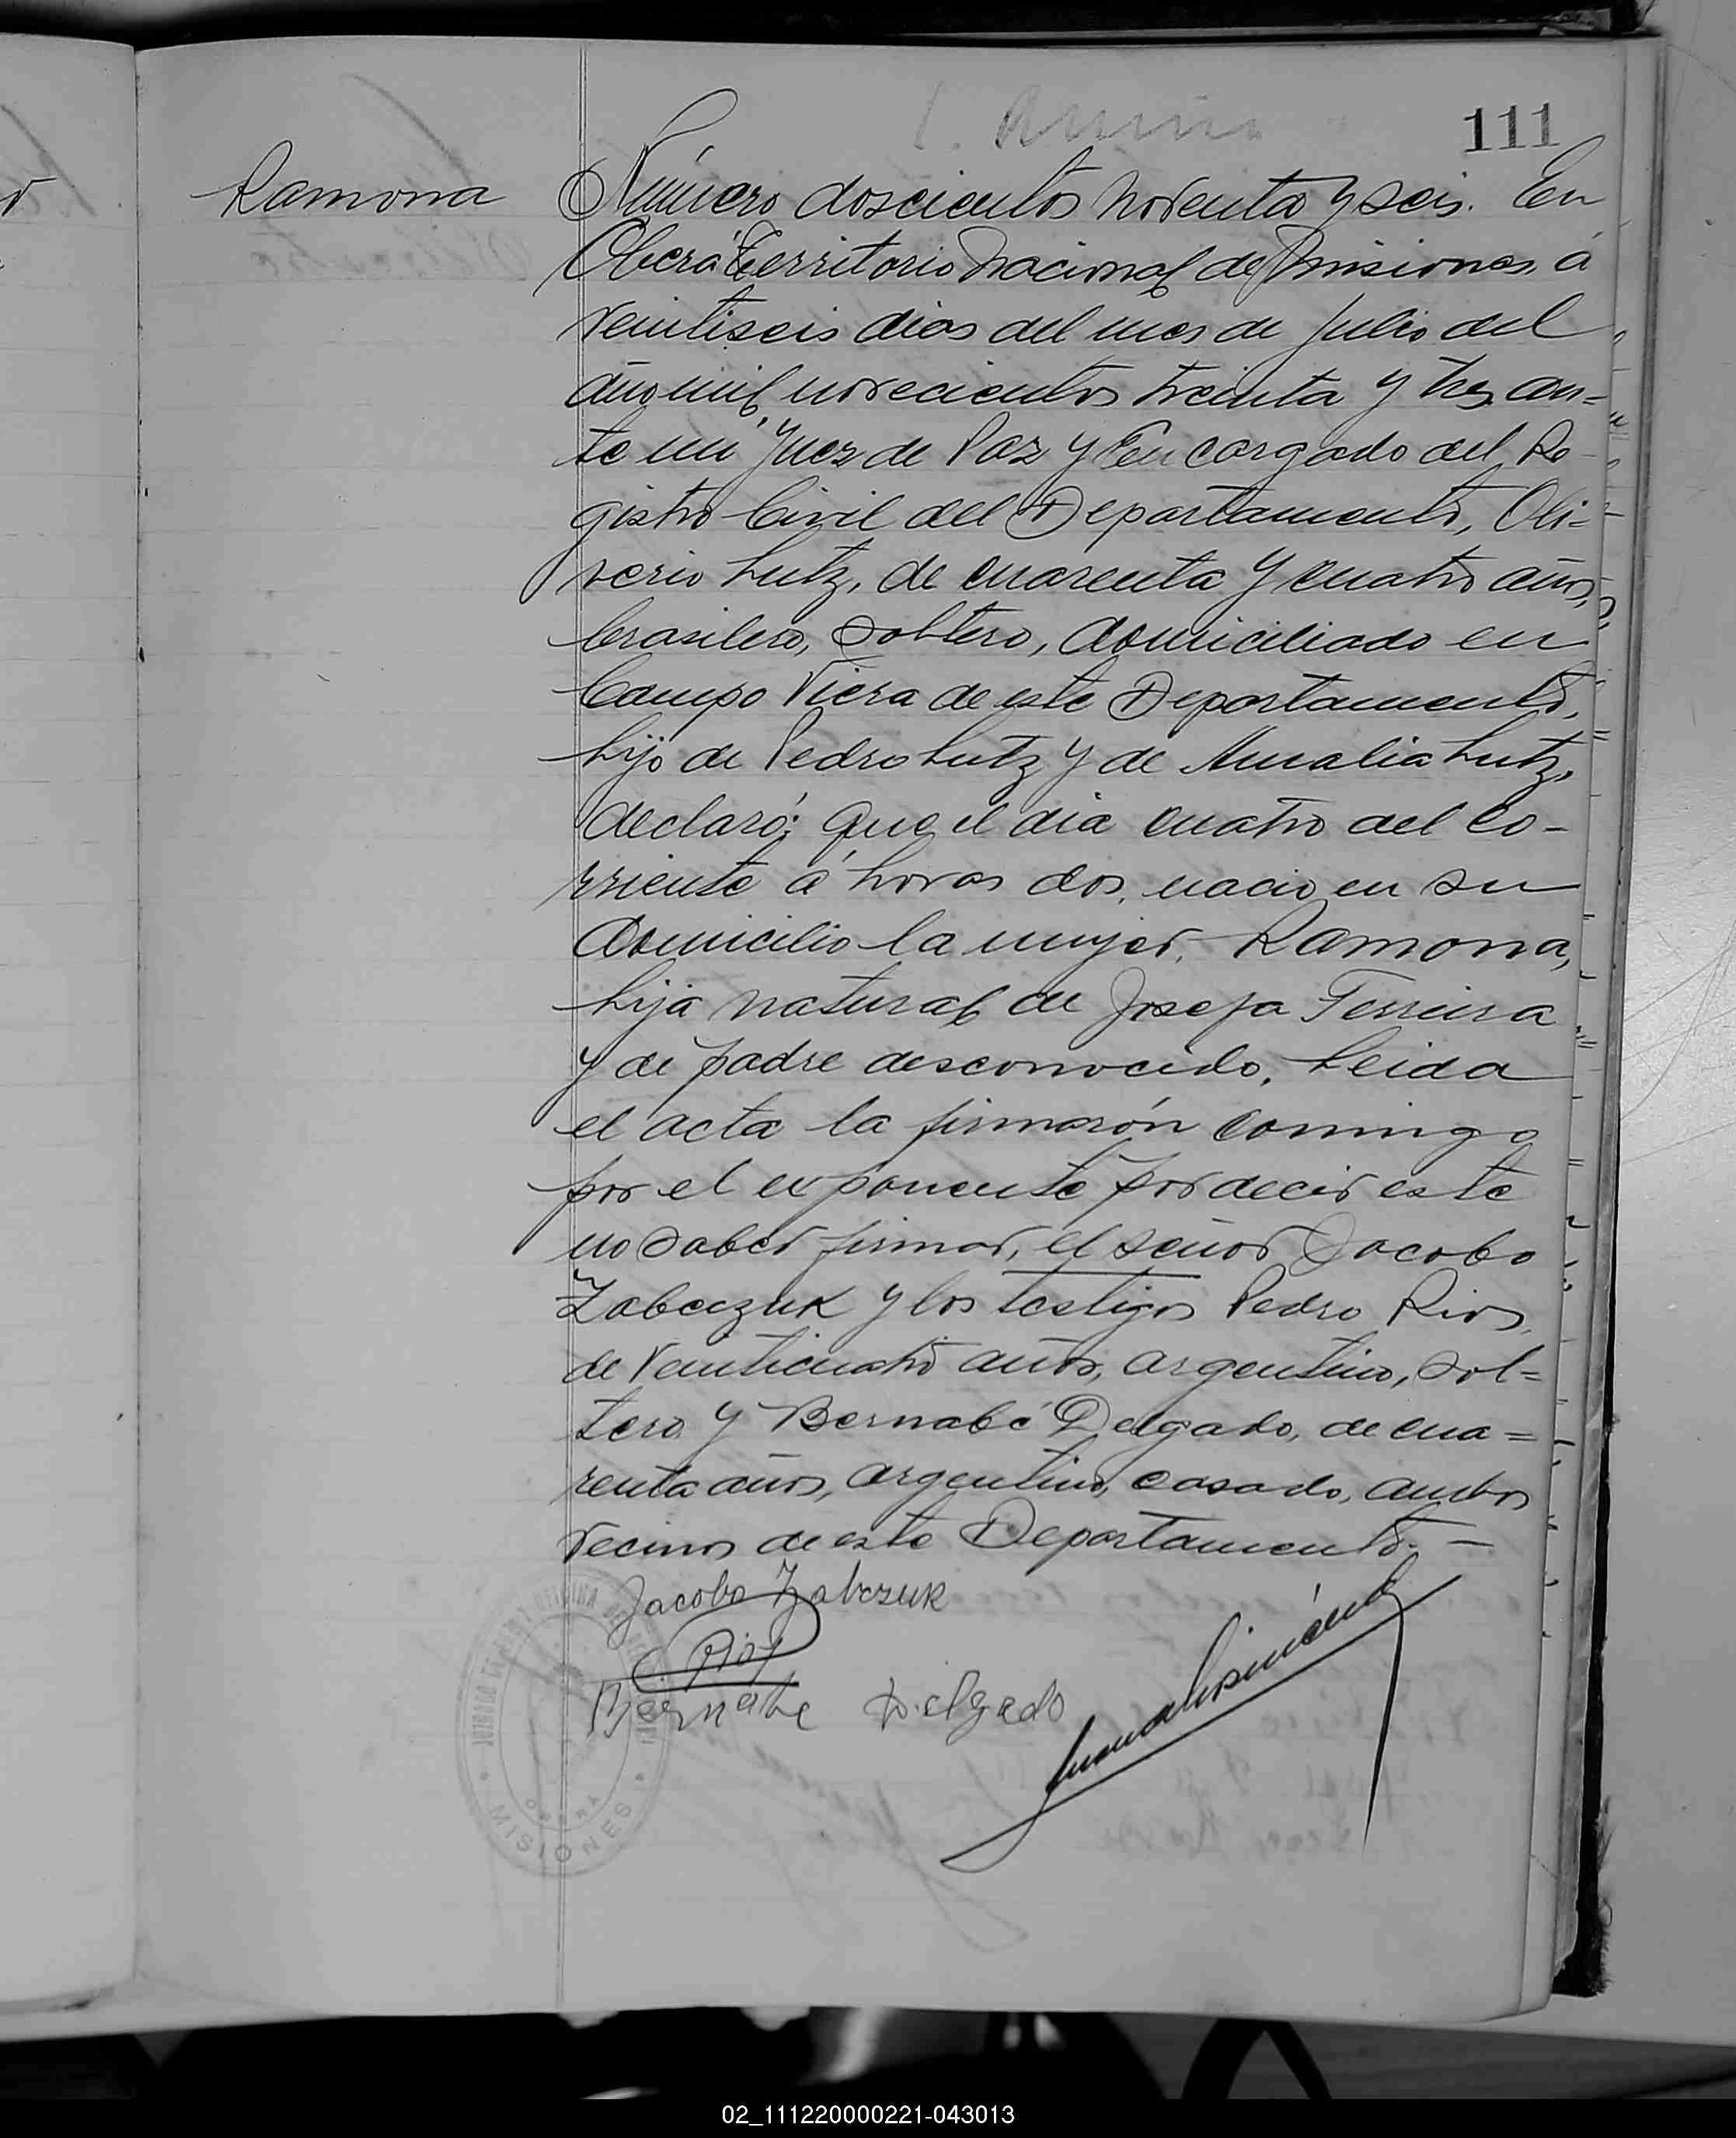 111
Ramona
Número doscientos noventa y seis. En
Oberá Territorio Nacional de Misiones, á
veintiseis dias del mes de Julio del
año mil novecientos treinta y tres, an=
te mi Juez de Paz y Encargado del Re-
gistro Civil del Departamento, Oli=
verio Lutz, de cuarenta y cuatro años,
brasilero, soltero, domiciliado en
Campo Viera de este Departamento,
hijo de Pedro Lutz y de Amalia Lutz,
declaró: que el dia cuatro del co-
rriente á horas dos, nacio en su
domicilio la mujer, Ramona,
hija natural de Josefa Ferreira
y de padre desconocido. Leida
el acta la firmarón comingo
por el exponente por decir este
no saber firmar, el señor Jacobo
Zabczuk y los testigos Pedro Rios,
de veinticuatro años, argentino, sol=
tero y Bernabé Delgado, de cua=
renta años, argentino, casado, ambos
vecinos de este Departamento. —
Jacobo Zabczuk
Rios
Bernabe Delgado
OBERÁ
MISIONES
02_111220000221-043013